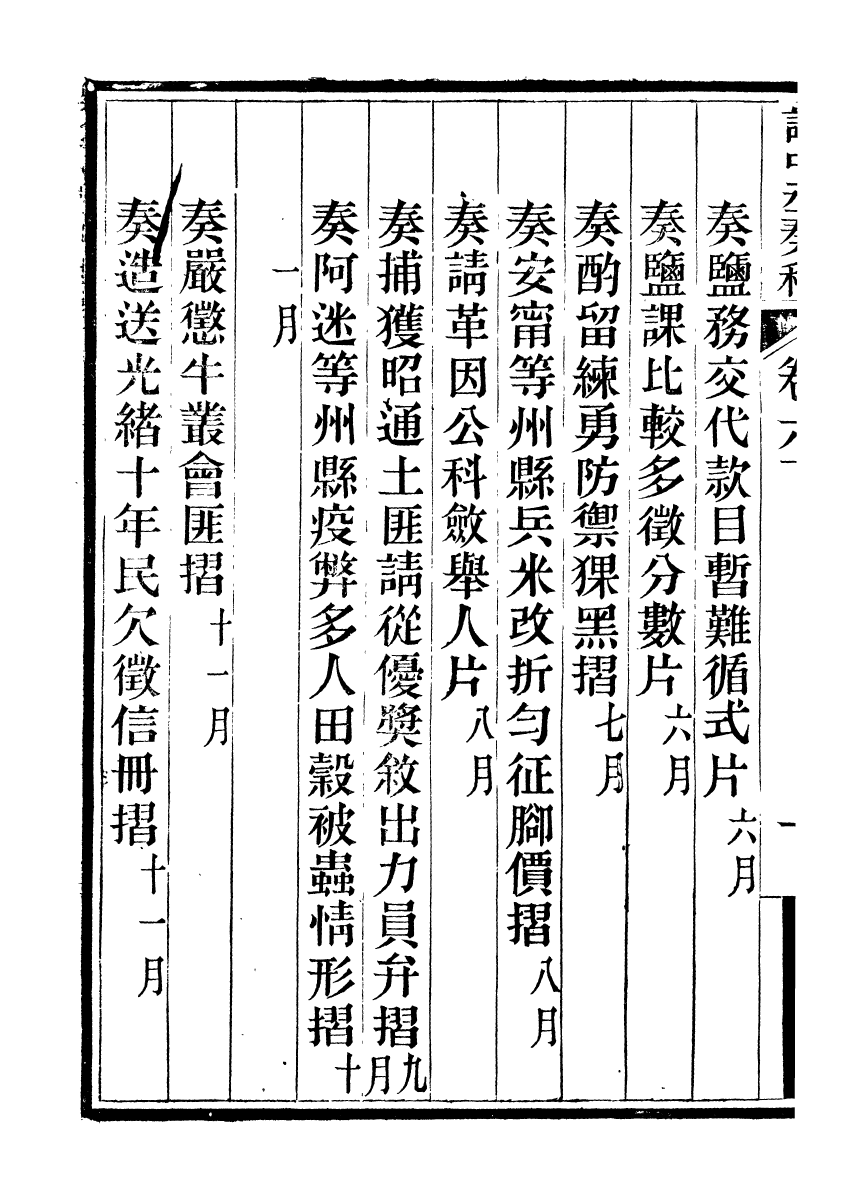 奏稿
卷六
一
奏鹽務交代款目暫難循式片六月
奏鹽課比較多徵分數片六月
奏酌留練勇防禦猓黑摺七月
奏安甯等州縣兵米改折勻征腳價摺八月
奏請革因公科斂舉人片八月
奏捕獲昭通土匪請從優獎敘出力員弁摺九月
奏阿迷等州縣疫斃多人田穀被蟲情形摺十
一月
奏嚴懲牛叢會匪摺十一月
奏造送光緒十年民欠徵信冊摺十一月